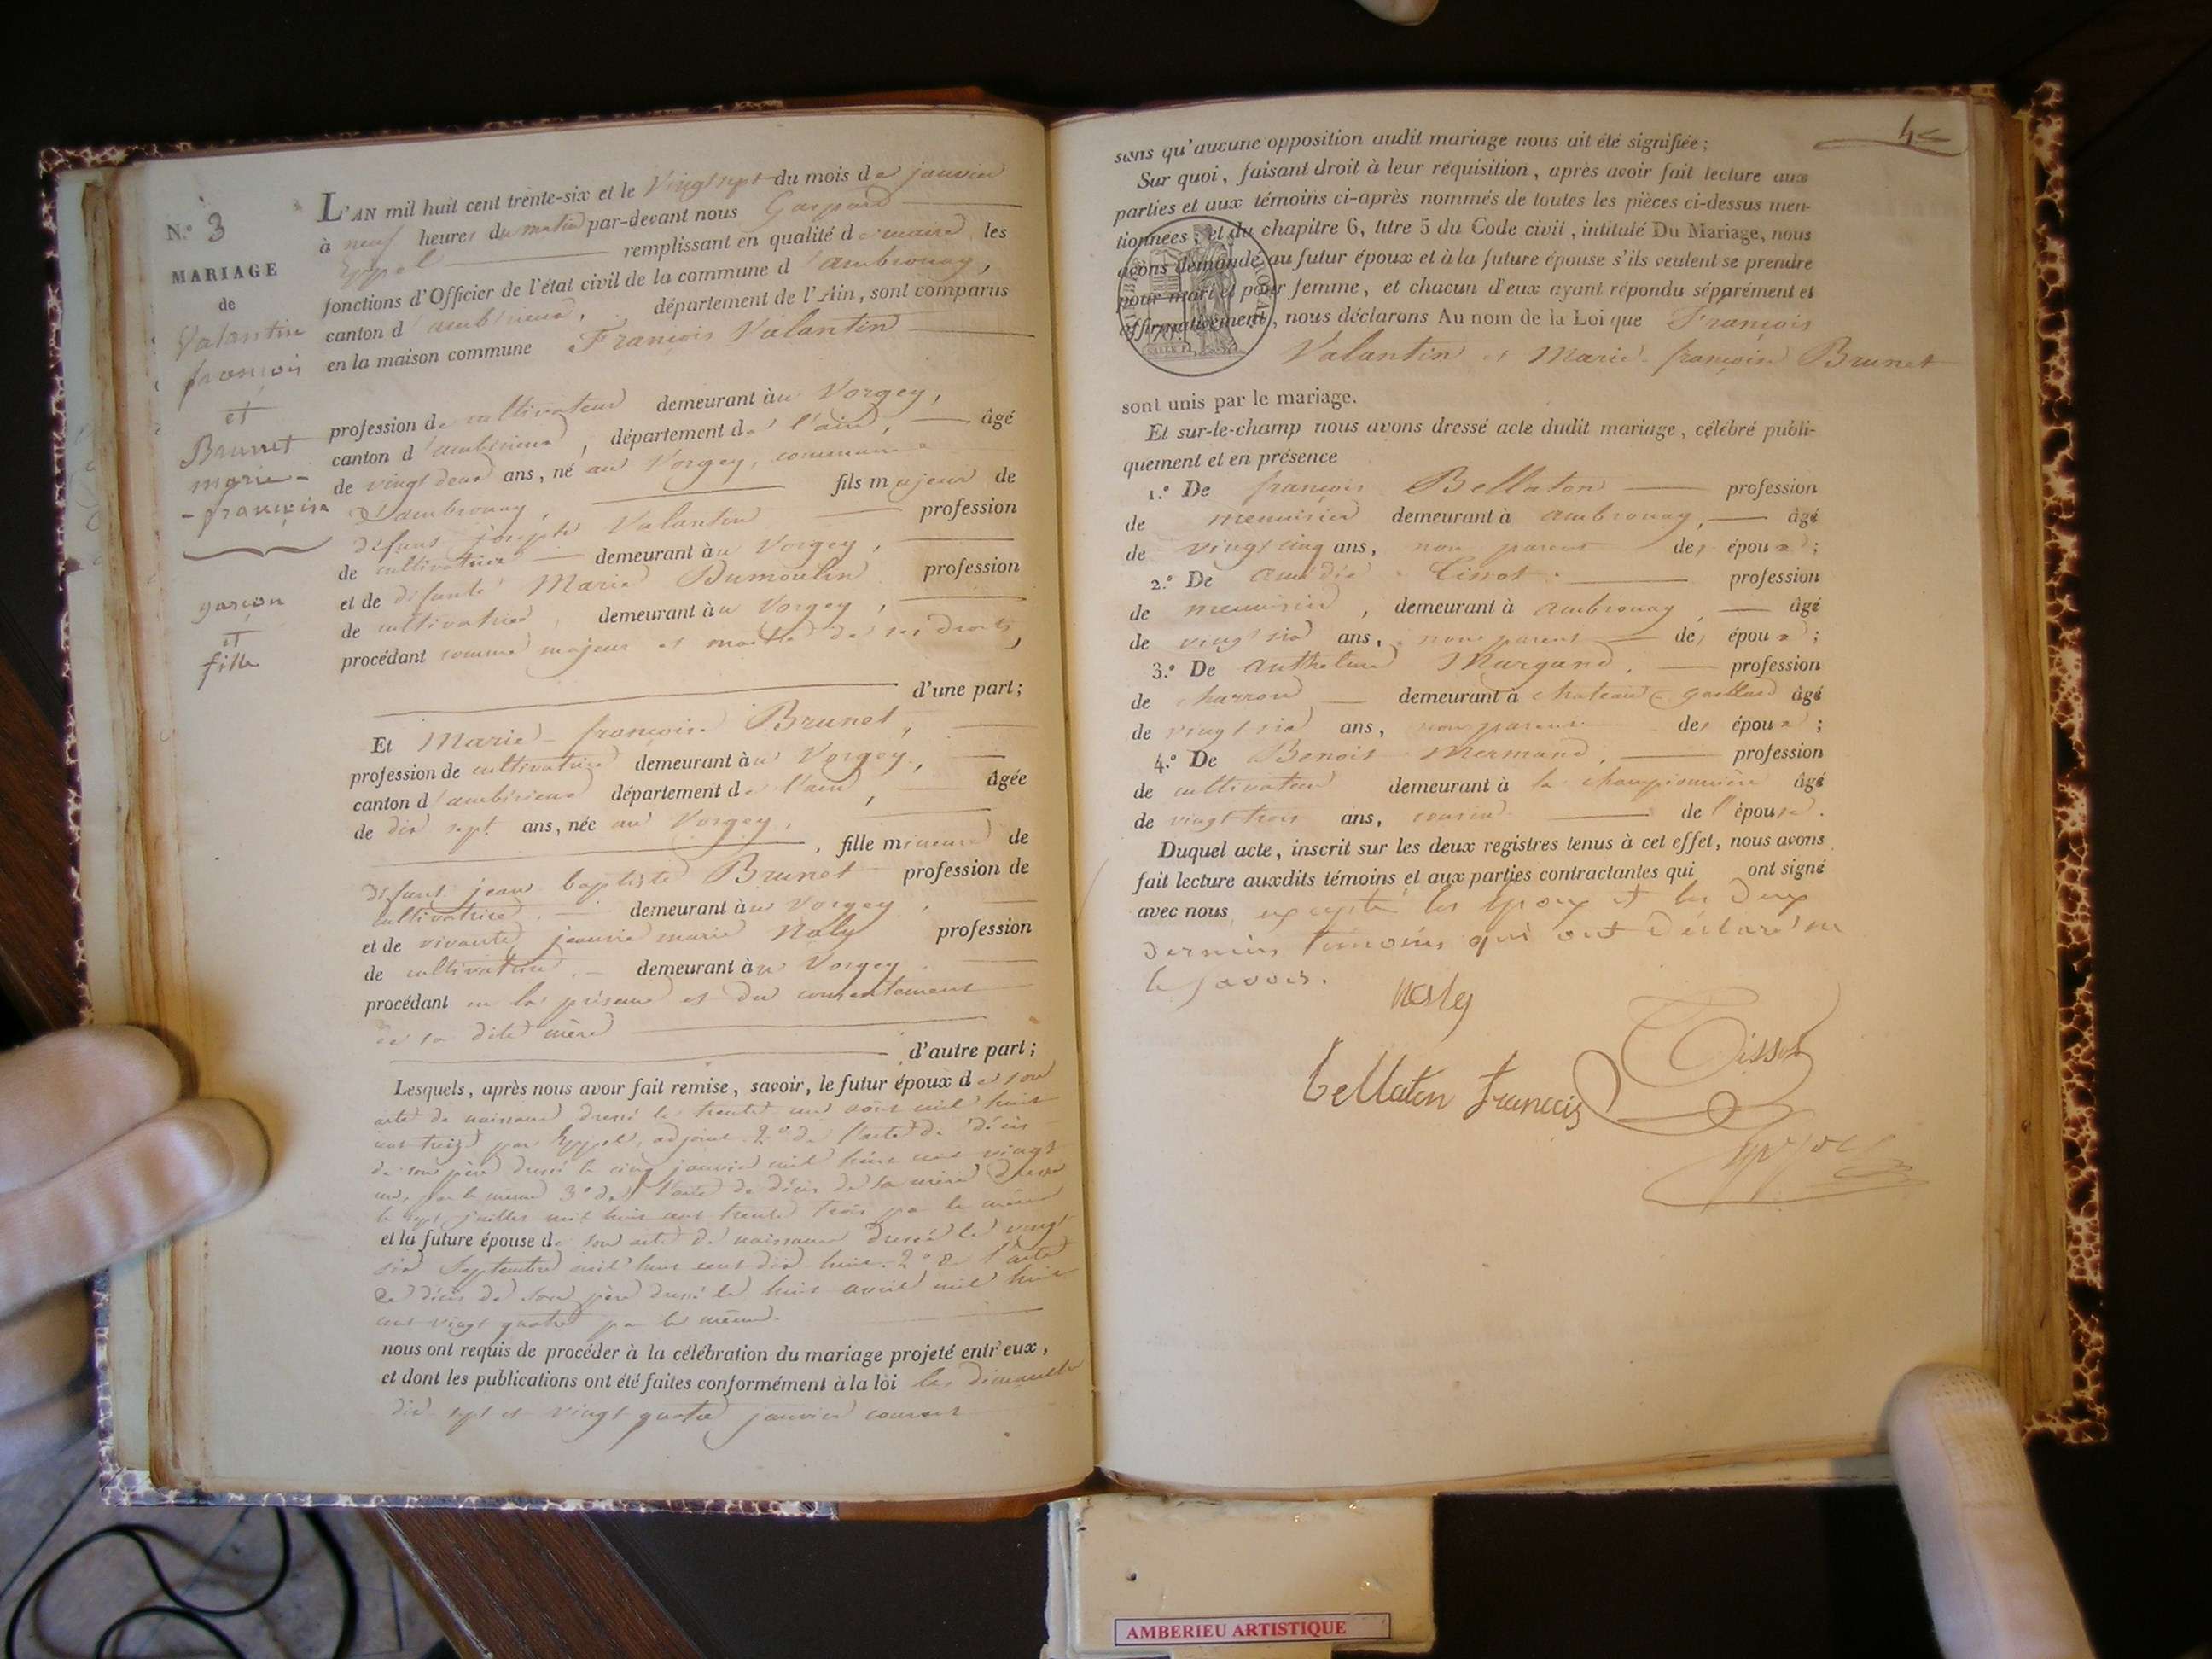 N.º 3
MARIAGE
de
Valantin
françois
et
Brunet
marie-
-françoise
garçon
et
fille
L'AN mil huit cent trente-six et le Vingt sept du mois de janvier
à neuf heures du matin par-devant nous Gaspard
Eppel remplissant en qualité de maire les
fonctions d'Officier de l'état civil de la commune d'ambronay,
canton d'ambérieux, département de l'Ain, sont comparus
en la maison commune François Valantin
profession de cultivateur demeurant au Vorgey,
canton d'ambérieux, département de l'ain, âgé
de vingt deux ans, né au Vorgey, commune
d'ambronay, fils majeur de
défunt joseph Valantin profession
de cultivateur demeurant au Vorgey,
et de défunte Marie Dumoulin profession
de cultivatrice, demeurant au Vorgey,
procédant comme majeur et maitre de ses droits,
d'une part;
Et Marie-françoise Brunet,
profession de cultivatrice demeurant au Vorgey,
canton d'ambérieux département de l'ain, âgée
de dix sept ans, née au Vorgey,
, fille mineure de
défunt jean baptiste Brunet profession de
cultivatrice, demeurant au Vorgey,
et de vivante jeanne marie Naly profession
de cultivatrice, demeurant au Vorgey
procédant en la présence et du consentement
de sa dite mère
d'autre part;
Lesquels, après nous avoir fait remise, savoir, le futur époux de son
acte de naissance dressé le trente un août mil huit
cent treize par Eppel, adjoint 2º de l'acte de décès
de son père dressé le cinq janvier mil huit cent vingt
un, par le même 3º de l'acte de décès de sa mère dressé
le sept juillet mil huit cent trente trois par le même
et la future épouse de son acte de naissance dressé le vingt
six Septembre mil huit cent dix huit. 2º de l'acte
de décès de son père dressé le huit avril mil huit
cent vingt quatre par le même.
nous ont requis de procéder à la célébration du mariage projeté entr'eux,
et dont les publications ont été faites conformément à la loi les dimanches
dix sept et vingt quatre janvier courant
sans qu'aucune opposition audit mariage nous ait été signifiée;
Sur quoi, faisant droit à leur réquisition, après avoir fait lecture aux
parties et aux témoins ci-après nommés de toutes les pièces ci-dessus men-
tionnées, et du chapitre 6, titre 5 du Code civil, intitulé Du Mariage, nous
avons demandé au futur époux et à la future épouse s'ils veulent se prendre
pour mari et pour femme, et chacun d'eux ayant répondu séparément et
affirmativement, nous déclarons Au nom de la Loi que François
Valantin et Marie-françoise Brunet
sont unis par le mariage.
Et sur-le-champ nous avons dressé acte dudit mariage, célébré publi-
quement et en présence
1.º De françois Bellaton profession
de menuisier demeurant à ambronay, âgé
de vingt cinq ans, non parent des époux;
2.º De amédée Tissot. profession
de menuisier, demeurant à ambronay, âgé
de vingt six ans, non parent des époux;
3.º De anthelme Murgand, profession
de charron demeurant à chateau gaillard âgé
de vingt six ans, non parent des époux;
4.º De Benoit Mermand, profession
de cultivateur demeurant à la championnière âgé
de vingt trois ans, cousin de l'épouse.
Duquel acte, inscrit sur les deux registres tenus à cet effet, nous avons
fait lecture auxdits témoins et aux parties contractantes qui ont signé
avec nous excepté les époux et les deux
derniers témoins qui ont déclaré ne
le savoir.
Tissot
bellaton francois
AMBERIEU ARTISTIQUE